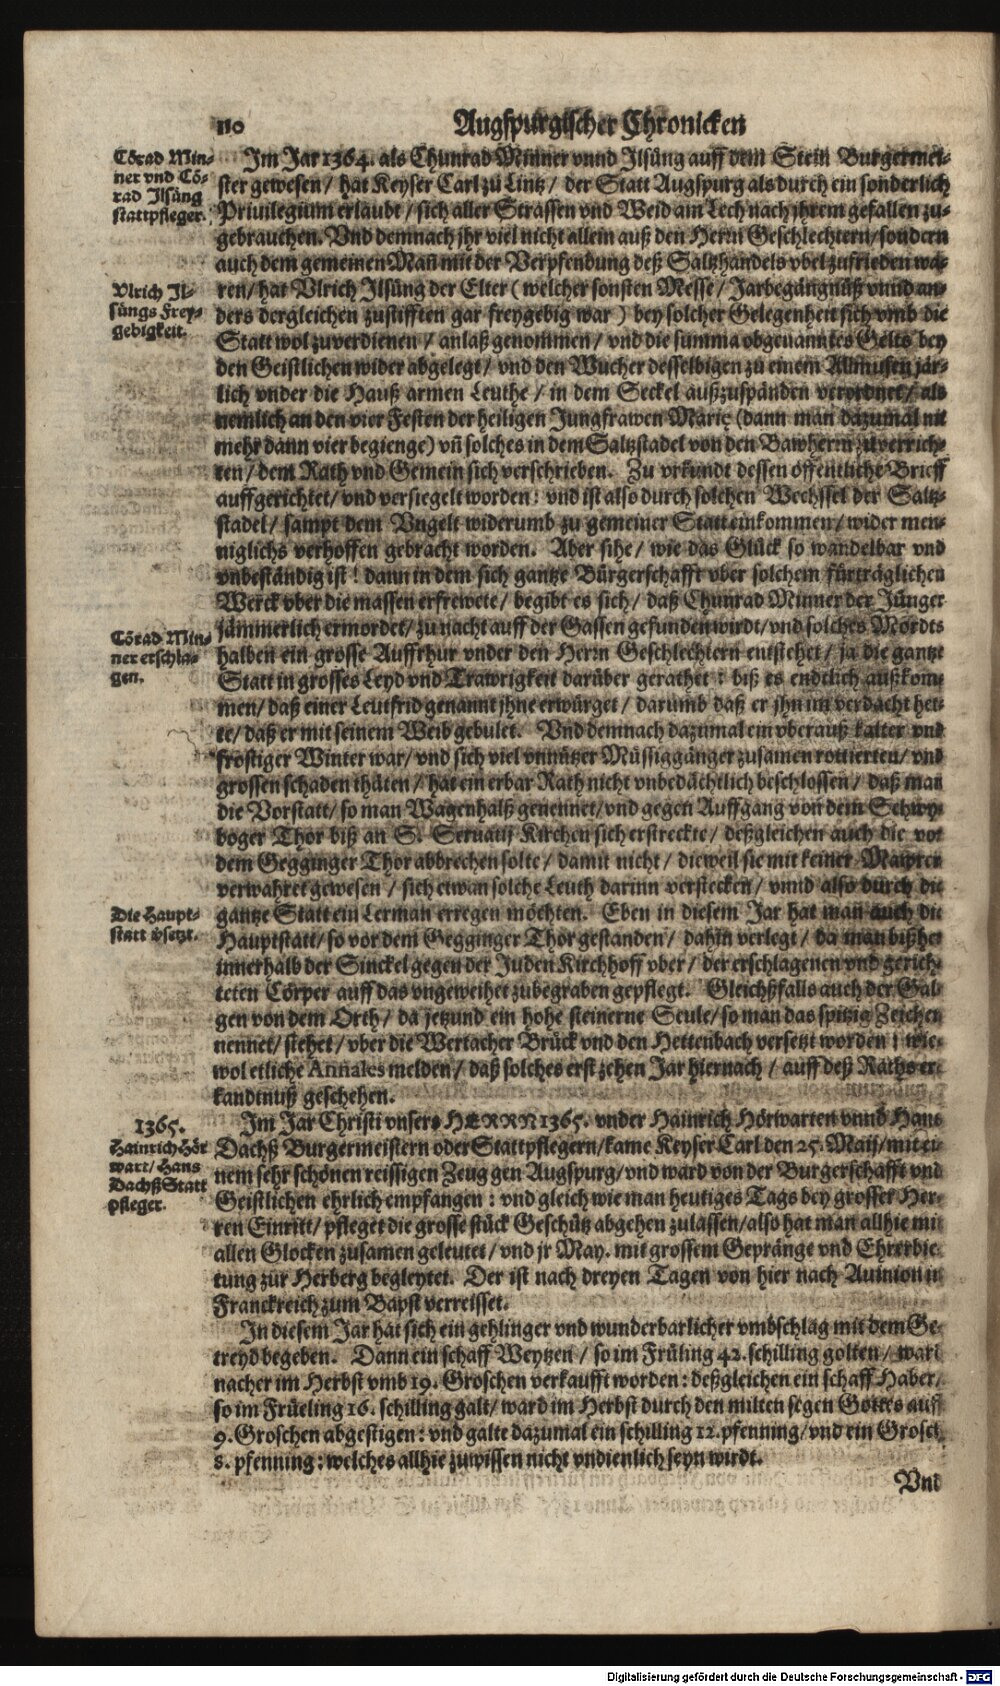 110
Augspurgischer Chronicken
Cõrad Min-
ner vnd Cõ-
rad Ilsüng
stattpfleger.
Im Jar 1364. als Chunrad Minner vnnd Ilsüng auff dem Stein Burgermei-
ster gewesen / hat Keyser Carl zu Lintz / der Statt Augspurg als durch ein sonderlich
Priuilegium erlaubt / sich aller Strassen vnd Weid am Lech nach jhrem gefallen zu-
gebrauchen. Vnd demnach jhr viel nicht allein auß den Herrn Geschlechtern / sondern
auch dem gemeinen Mañ mit der Verpfendung deß Saltzhandels vbel zufrieden wa-
Vlrich Il-
süngs Frey-
gebigkeit.
ren / hat Vlrich Ilsüng der Elter ( welcher sonsten Messe / Jarbegängnüß vnnd an-
ders dergleichen zustifften gar freygebig war ) bey solcher Gelegenheit sich vmb die
Statt wol zuverdienen / anlaß genommen / vnd die summa obgenanntes Gelts bey
den Geistlichen wider abgelegt / vnd den Wucher desselbigen zu einem Allmusen jär-
lich vnder die Hauß armen Leuthe / in dem Seckel außzuspänden verordnet / als
nemlich an den vier Festen der heiligen Jungfrawen Marię (dann man dazumal nit
mehr dann vier begienge) vñ solches in dem Saltzstadel von den Bawherrn zuverrich-
ten / dem Rath vnd Gemein sich verschrieben. Zu vrkundt dessen offentliche Brieff
auffgerichtet / vnd versiegelt worden : vnd ist also durch solchen Wechssel der Saltz-
stadel / sampt dem Vngelt widerumb zu gemeiner Statt einkommen / wider men-
niglichs verhoffen gebracht worden. Aber sihe / wie das Glück so wandelbar vnd
vnbeständig ist ! dann in dem sich gantze Bürgerschafft vber solchem fürträglichen
Werck vber die massen erfrewete / begibt es sich / daß Chunrad Minner der Jünger
Cõrad Min-
ner erschla-
gen.
jämmerlich ermordet / zu nacht auff der Gassen gefunden wirdt / vnd solches Mordts
halben ein grosse Auffrhur vnder den Herrn Geschlechtern entstehet / ja die gantze
Statt in grosses Leyd vnd Trawrigkeit darüber gerathet : biß es endtlich außkom-
men / daß einer Leutfrid genannt jhne erwürget / darumb daß er jhn im verdacht het-
te / daß er mit seinem Weib gebulet. Vnd demnach dazumal ein vberauß kalter vnd
frostiger Winter war / vnd sich viel vnnützer Müssiggänger zusamen rottierten / vnd
grossen schaden thäten / hat ein erbar Rath nicht vnbedächtlich beschlossen / daß man
die Vorstatt / so man Wagenhalß genennet / vnd gegen Auffgang von dem Schwy-
boger Thor biß an S. Seruatij Kirchen sich erstreckte / deßgleichen auch die vor
dem Gegginger Thor abbrechen solte / damit nicht / dieweil sie mit keiner Mawren
verwahret gewesen / sich etwan solche Leuth darinn verstecken / vnnd also durch die
Die Haupt-
statt v̈setzt.
gantze Statt ein Lerman erregen möchten. Eben in diesem Jar hat man auch die
Hauptstatt / so vor dem Gegginger Thor gestanden / dahin verlegt / da man bißher
innerhalb der Sinckel gegen der Juden Kirchhoff vber / der erschlagenen vnd gerich-
teten Cörper auff das vngeweihet zubegraben gepflegt. Gleichßfalls auch der Gal-
gen von dem Orth / da jetzund ein hohe steinerne Seule / so man das spitzig Zeichen
nennet / stehet / vber die Wertacher Brück vnd den Hettenbach versetzt worden ; wie-
wol etliche Annales melden / daß solches erst zehen Jar hiernach / auff deß Raths er-
kandtnuß geschehen.
1365.
Hainrich Hör
wart / Hans
Dachß Statt
pfleger.
Im Jar Christi vnsers HERRN 1365. vnder Hainrich Hörwarten vnnd Hans
Dachß Burgermeistern oder Stattpflegern / kame Keyser Carl den 25. Maij / mit ei-
nem sehr schönen reissigen Zeug gen Augspurg / vnd ward von der Burgerschafft vnd
Geistlichen ehrlich empfangen : vnd gleich wie man heutiges Tags bey grosser Her-
ren Einritt / pfleget die grosse stück Geschütz abgehen zulassen / also hat man allhie mit
allen Glocken zusamen geleutet / vnd jr May. mit grossem Gepränge vnd Ehrerbie-
tung zur Herberg begleytet. Der ist nach dreyen Tagen von hier nach Auinion in
Franckreich zum Bapst verreisset.
In diesem Jar hat sich ein gehlinger vnd wunderbarlicher vmbschlag mit dem Ge-
treyd begeben. Dann ein schaff Weytzen / so im Früling 42. schilling golten / ward
nacher im Herbst vmb 19. Groschen verkaufft worden : deßgleichen ein schaff Haber /
so im Früeling 16. schilling galt / ward im Herbst durch den milten segen Gottes auff
9. Groschen abgestigen : vnd galte dazumal ein schilling 12. pfenning / vnd ein Grosch.
8. pfenning : welches allhie zuwissen nicht vndienlich seyn wirdt.
Vnd
Digitalisierung gefördert durch die Deutsche Forschungsgemeinschaft - DFG